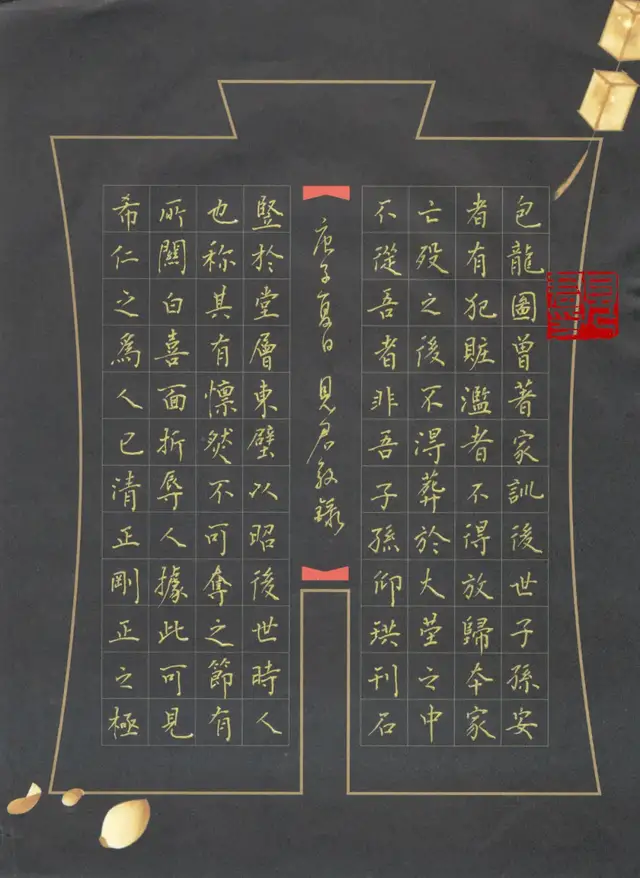 包龍圖曾著家訓後世子孫安
者有犯贓濫者不得放歸本家
亡歿之後不淂葬於大塋之中
不從吾者非吾子孫仰珙刊石
庚子夏日 見君敬錄
豎於堂層東壁以昭後世時人
也称其有懍然不可奪之節有
所關白喜面折辱人據此可見
希仁之爲人已清正剛正之極